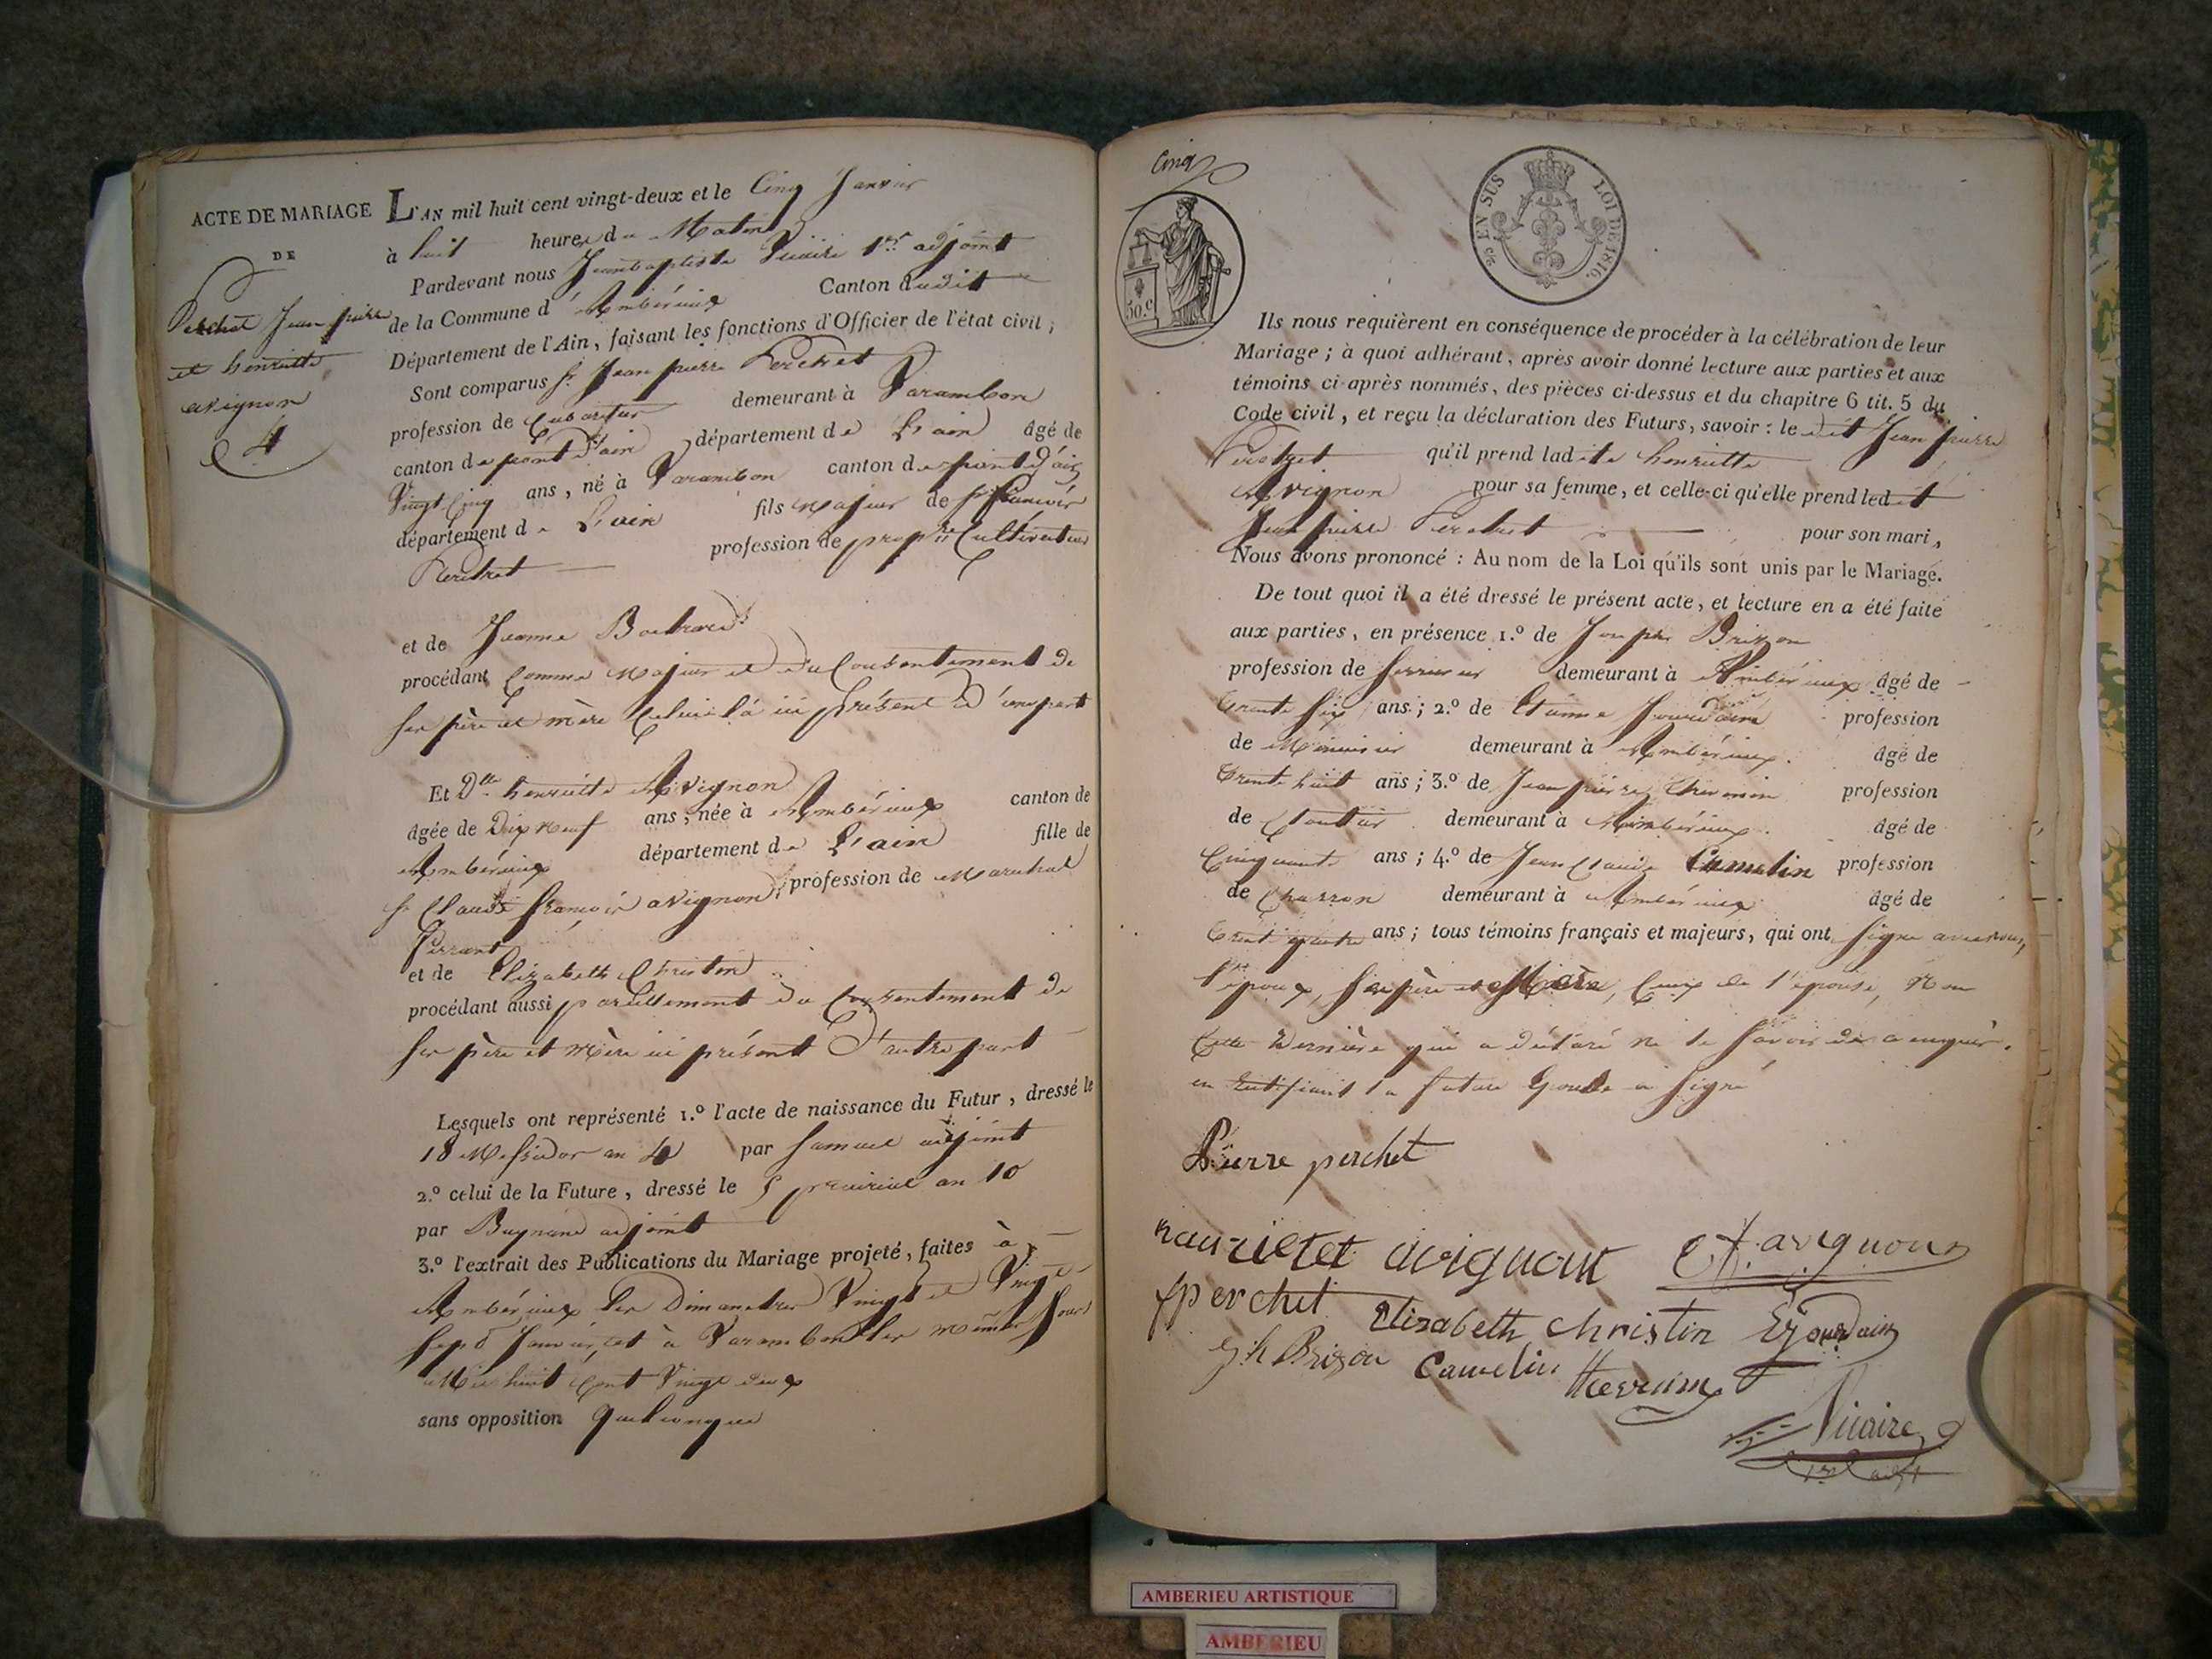 ACTE DE MARIAGE
DE
Perchet Jean pierre
et henriette
avignon
4
L'AN mil huit cent vingt-deux et le Cinq Janvier
à huit heures du Matin
Pardevant nous Jeanbaptiste Vicaire 1er adjoint
de la Commune d'Ambérieux Canton dudit
Département de l'Ain, faisant les fonctions d'Officier de l'état civil;
Sont comparus sr Jean pierre Perchet
profession de demeurant à Varambon
canton de pont d'ain département de L'ain âgé de
Vingt Cinq ans, né à Varambon canton de pont d'ain
département de L'ain fils Majeur de sr françois
Perchet profession de propre Cultivateur
et de Jeanne
procédant Comme Majeur et du Consentement de
ses père et mère Celui là ici présent d'une part
Et Dlle henriette Avignon
âgée de Dix Neuf ans, née à Ambérieux canton de
Ambérieux département de L'ain fille de
sr Claude françois avignon, profession de Marechal
ferrant
et de Elizabeth Christin
procédant aussi pareillement du Consentement de
ses père et Mère ici présent D'autre part
Lesquels ont représenté 1.° l'acte de naissance du Futur, dressé le
18 Messidor an 4 par Samuel adjoint
2.° celui de la Future, dressé le 5 prairial an 10
par adjoint
3.° l'extrait des Publications du Mariage projeté, faites à
Ambérieux les Dimanches Vingt et Vingt
sept Janvier, et à Varambon les mêmes jours
Mil huit Cent Vingt deux
sans opposition Quelconque
Cinq
50.c
EN SUS
LOI DE 1816.
Ils nous requièrent en conséquence de procéder à la célébration de leur
Mariage; à quoi adhérant, après avoir donné lecture aux parties et aux
témoins ci-après nommés, des pièces ci-dessus et du chapitre 6 tit. 5 du
Code civil, et reçu la déclaration des Futurs, savoir: le dit Jean pierre
Perchet qu'il prend ladite henriette
Avignon pour sa femme, et celle-ci qu'elle prend ledit
Jean pierre Perchet pour son mari,
Nous avons prononcé: Au nom de la Loi qu'ils sont unis par le Mariage.
De tout quoi il a été dressé le présent acte, et lecture en a été faite
aux parties, en présence 1.° de Joseph Brizon
profession de Serrurier demeurant à Ambérieux âgé de
trente Six ans; 2.° de Etienne Jourdain profession
de Menuisier demeurant à Ambérieux. âgé de
Trente huit ans; 3.° de Jean pierre Thevenin profession
de Cloutier demeurant à Ambérieux. âgé de
Cinquante ans; 4.° de Jean Claude Camelin profession
de Charron demeurant à Ambérieux âgé de
Trente quatre ans; tous témoins français et majeurs, qui ont Signé avec nous,
l'époux, Ses père et Mère, Ceux de l'épouse, Non
Cette Dernière qui a déclaré ne le Savoir de ce enquis.
en rectifiant la future Epouse a Signé
Pierre perchet
hanrietet avignont
C.f. avignon
f perchet
Elizabeth Christin
E Jourdain
Jh Brizon
Camelin
Thevenin
Vicaire
1er adjt
AMBERIEU ARTISTIQUE
AMBERIEU